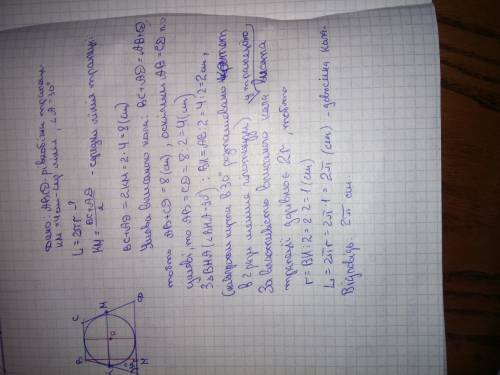 Дано: ABCD - рівнобічна трапеція
KM = 4 см - сер лінія, ∠A = 30°
L = 2πr - ?
KM = BC+AD / 2 - середня лінія трапеції.
BC+AD = 2KM = 2·4 = 8 (см)
Умова вписаного кола: BC+AD = AB+CD,
тобто AB+CD = 8 (см), оскільки AB = CD по
умові, то AB = CD = 8:2 = 4 (см)
З ΔBHA (∠BHA = 90°): BH = AB:2 = 4:2 = 2 см,
(навпроти кута в 30° розташовано катет
в 2 рази менше гіпотенузи).
За властивістю вписаного кола у трапецію, висота
трапеції дорівнює 2r, тобто
r = BH:2 = 2:2 = 1 (см)
L = 2πr = 2π·1 = 2π (см) - довжина кола.
Відповідь: 2π см.
B
C
K
M
O
A
30°
H
D